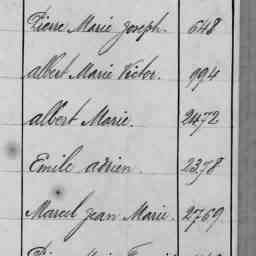 Pierre Marie Joseph. 648
albert Marie Victor. 994
albert Marie. 2472
Emile adrien. 2378
Marcel Jean Marie. 2769